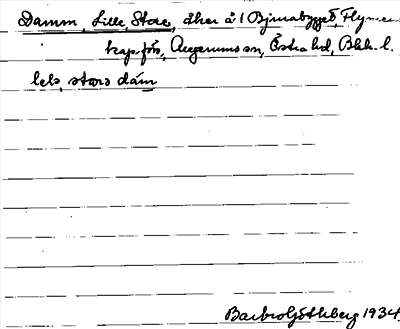 Damm, Lille, Stora, åker å 1 Björnabygget, Flymen
kap.förs., Augerums sn, Östra hd, Blek. l.
lelə, storə dám
Barbro Götlberg 1934.